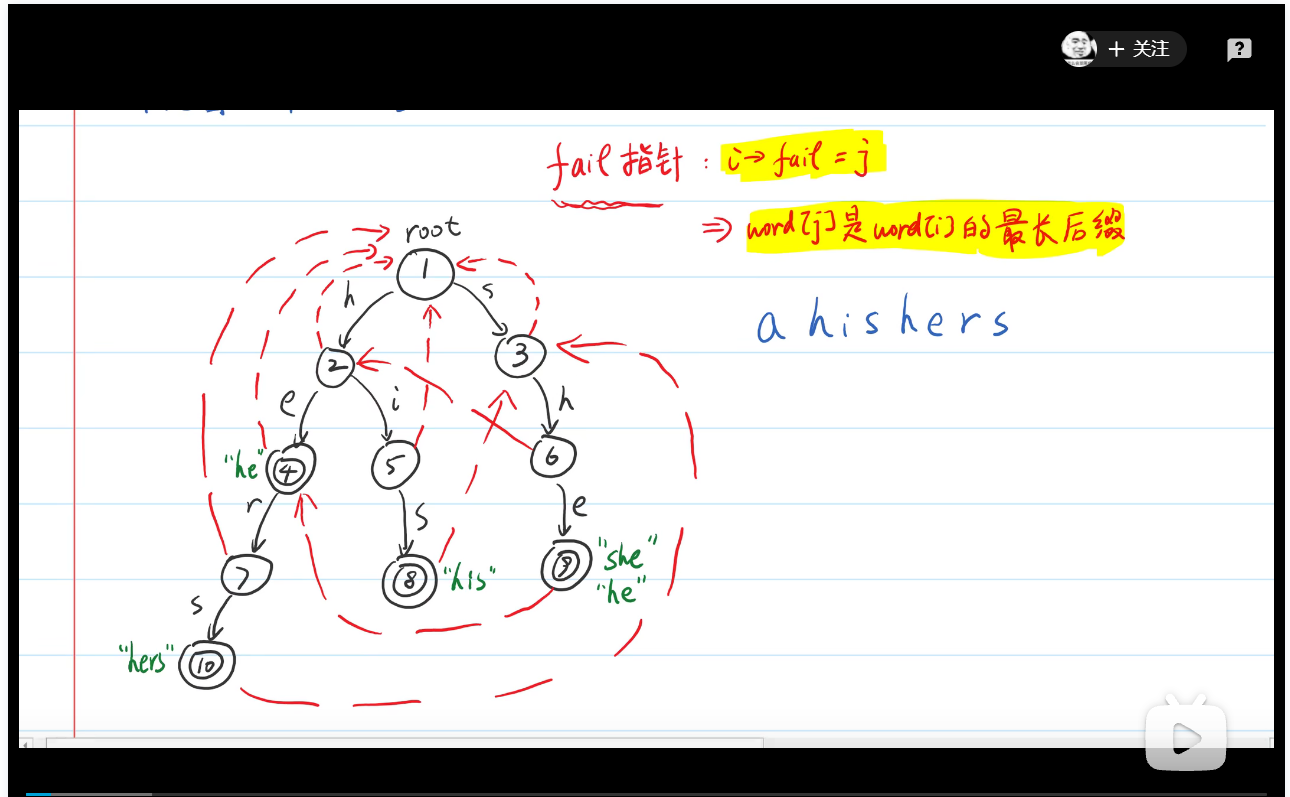 + 关注
?
fail 指针 : i→fail = j
⇒ word[j]是word[i]的最长后缀
root
1
h s
a h i s h e r s
2 3
e i h
"he" 4 5 6
r s e
7 8 "his" 9 "she"
"he"
s
"hers" 10